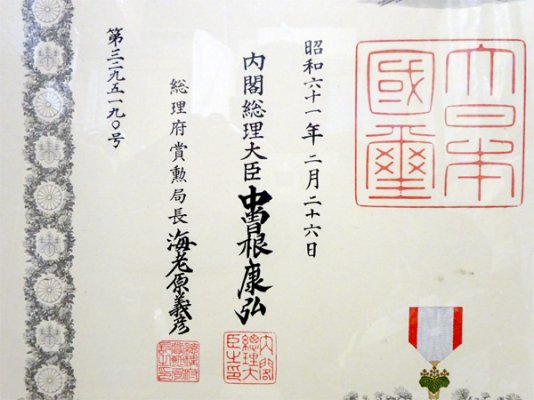 大日本
國璽
昭和六十一年二月二十六日
内閣総理大臣 中曽根康弘
内閣
総理大
臣之印
総理府賞勲局長 海老原義彦
第三二九五一九〇号